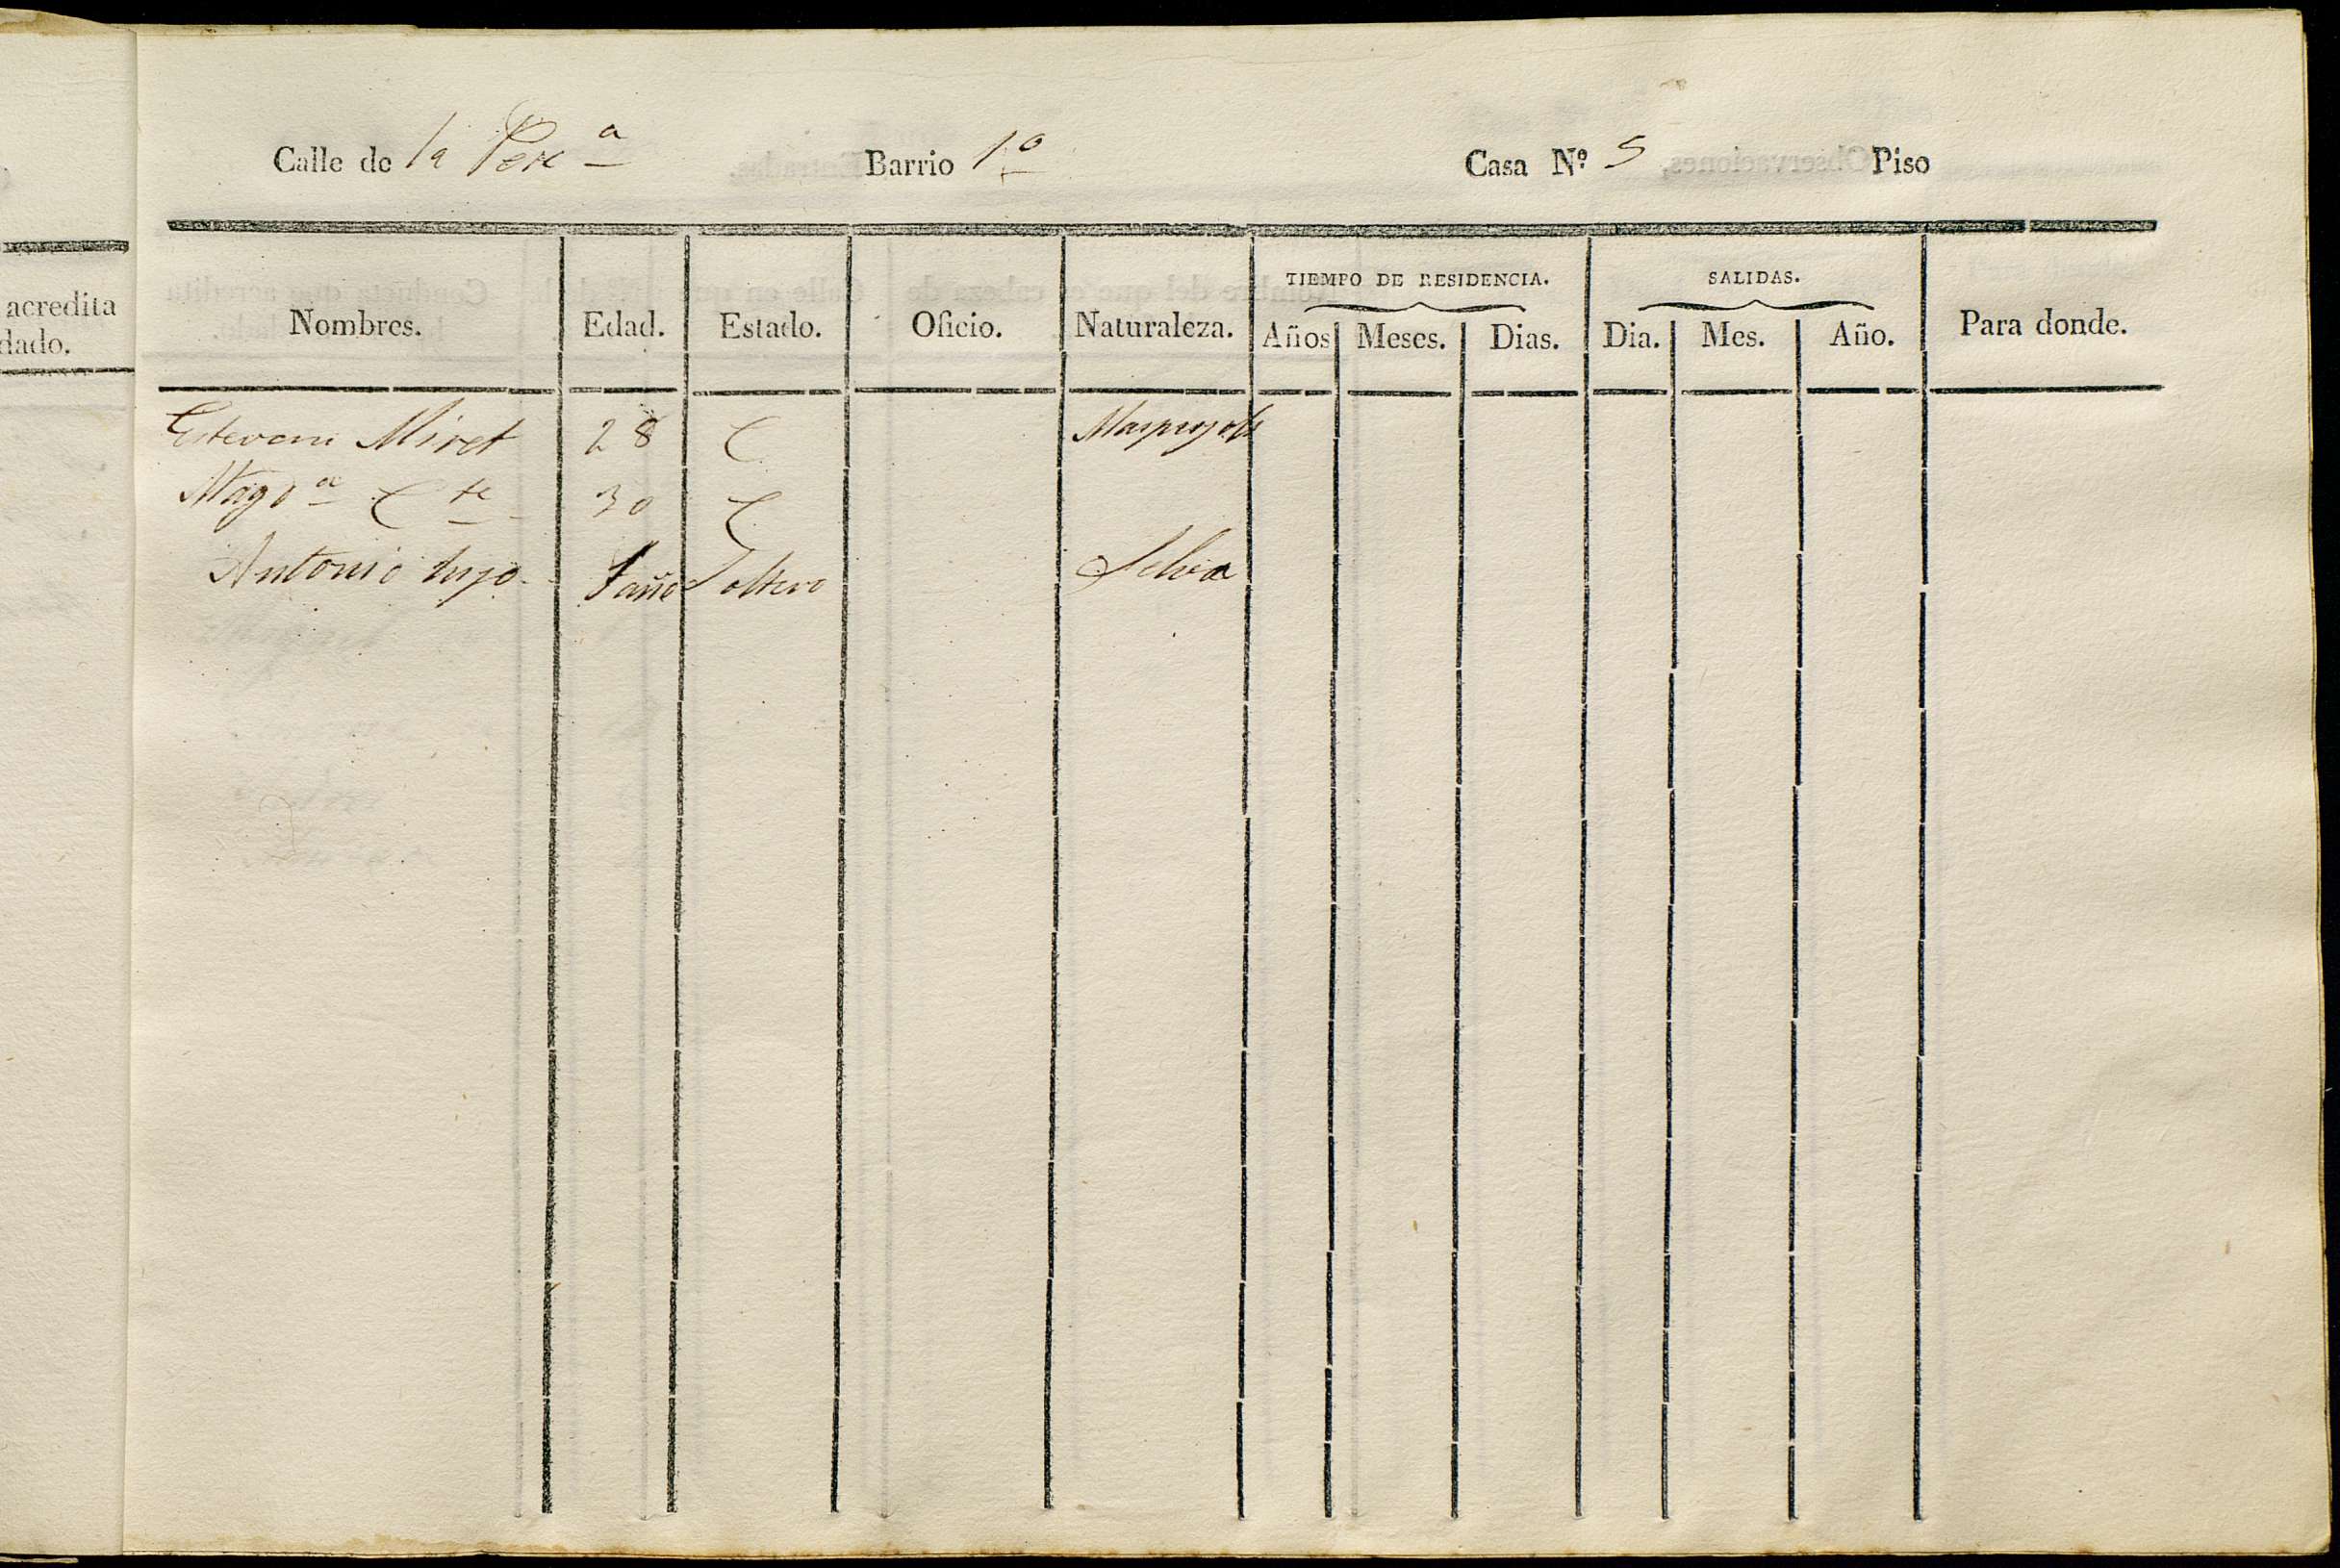 acredita
dado.
Calle de la Barrio 1º Casa Nº 5 Piso
TIEMPO DE RESIDENCIA. SALIDAS.
Nombres. Edad. Estado. Oficio. Naturaleza. Años Meses. Dias. Dia. Mes. Año. Para donde.
Estevan Miret 28 C
Magª C te 30 C
Antonio hijo 1 año Soltero Selva